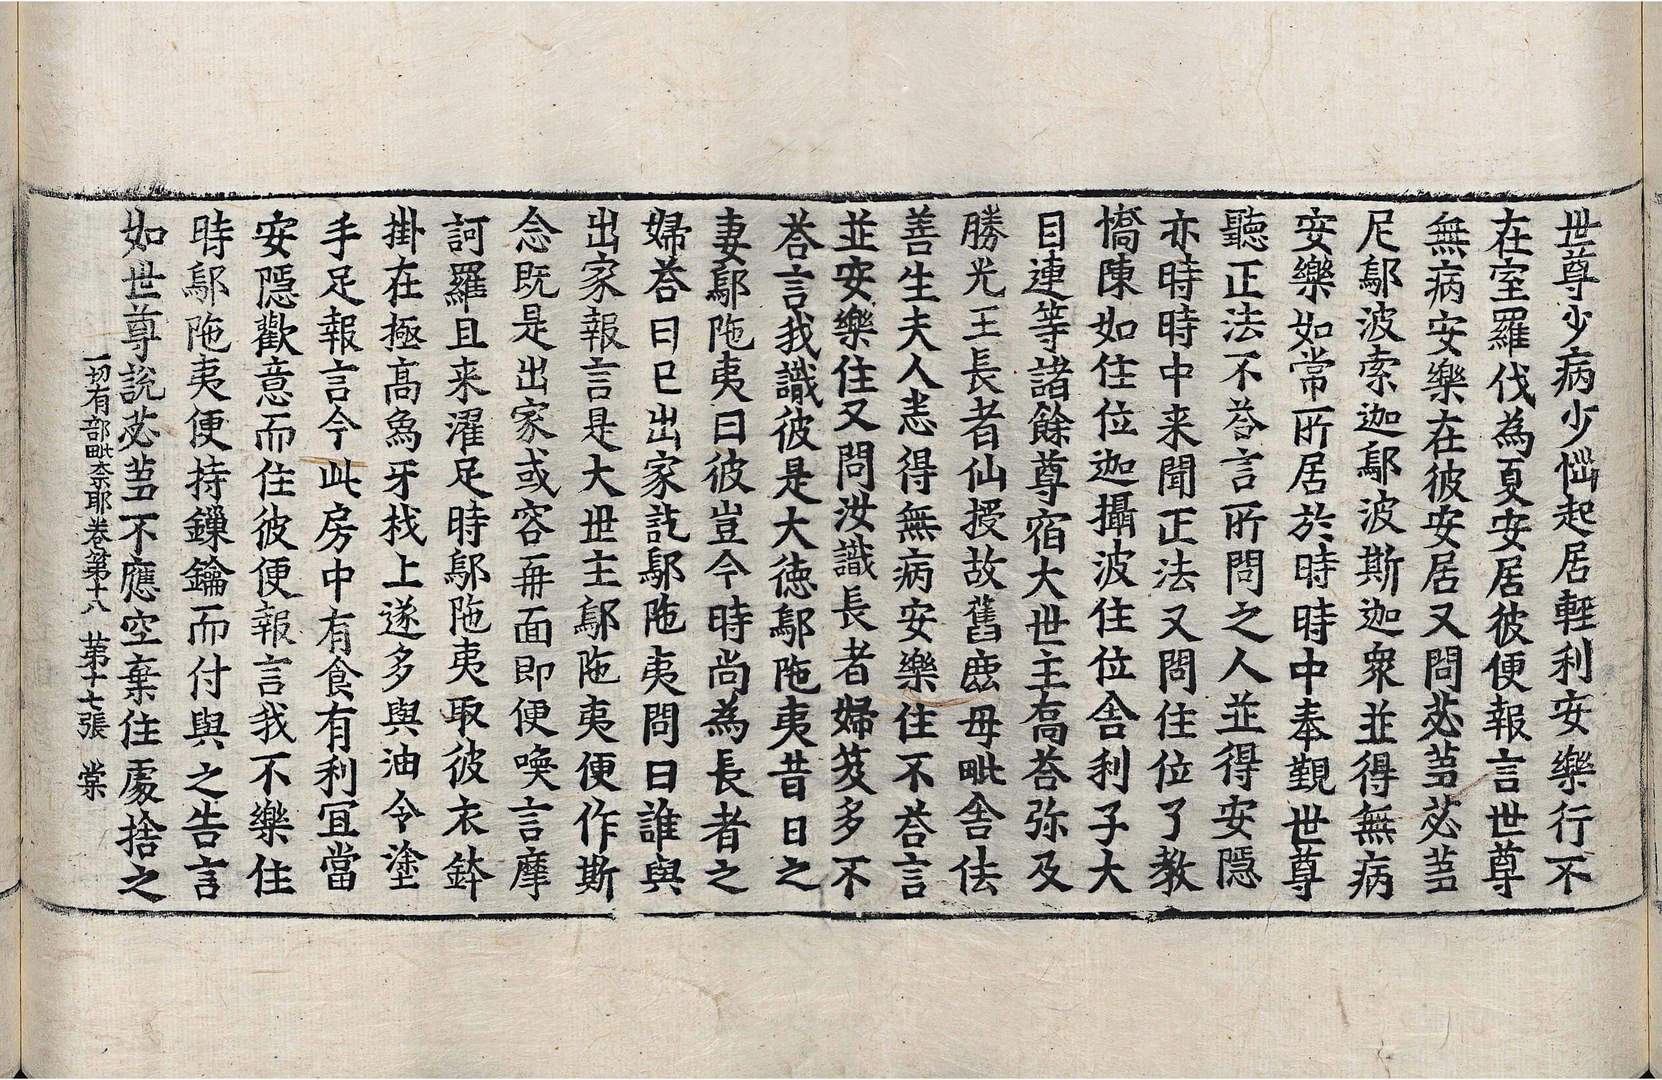 世尊少病少惱起居輕利安樂行不
在室羅伐為夏安居彼便報言世尊
無病安樂在彼安居又問苾蒭苾蒭
尼鄔波索迦鄔波斯迦衆並得無病
安樂如常所居於時時中奉覲世尊
聽正法不荅言所問之人並得安隱
亦時時中来聞正法又問住位了教
憍陳如住位迦攝波住位舍利子大
目連等諸餘尊宿大世主喬荅弥及
勝光王長者仙授故舊鹿母毗舍佉
善生夫人恚得無病安樂住不荅言
並安樂住又問汝識長者婦笈多不
荅言我識彼是大德鄔陁夷昔日之
妻鄔陁夷曰彼豈今時尚為長者之
婦荅曰已出家訖鄔陁夷問曰誰與
出家報言是大世主鄔陁夷便作斯
念既是出家或容再面即便喚言摩
訶羅且来濯足時鄔陁夷取彼衣鉢
掛在極高象牙杙上遂多與油令塗
手足報言今此房中有食有利冝當
安隱歡意而住彼便報言我不樂住
時鄔陁夷便持鏁鑰而付與之告言
如世尊說苾蒭不應空棄住處捨之
一切有部毗奈耶卷第十八　第十七張　棠